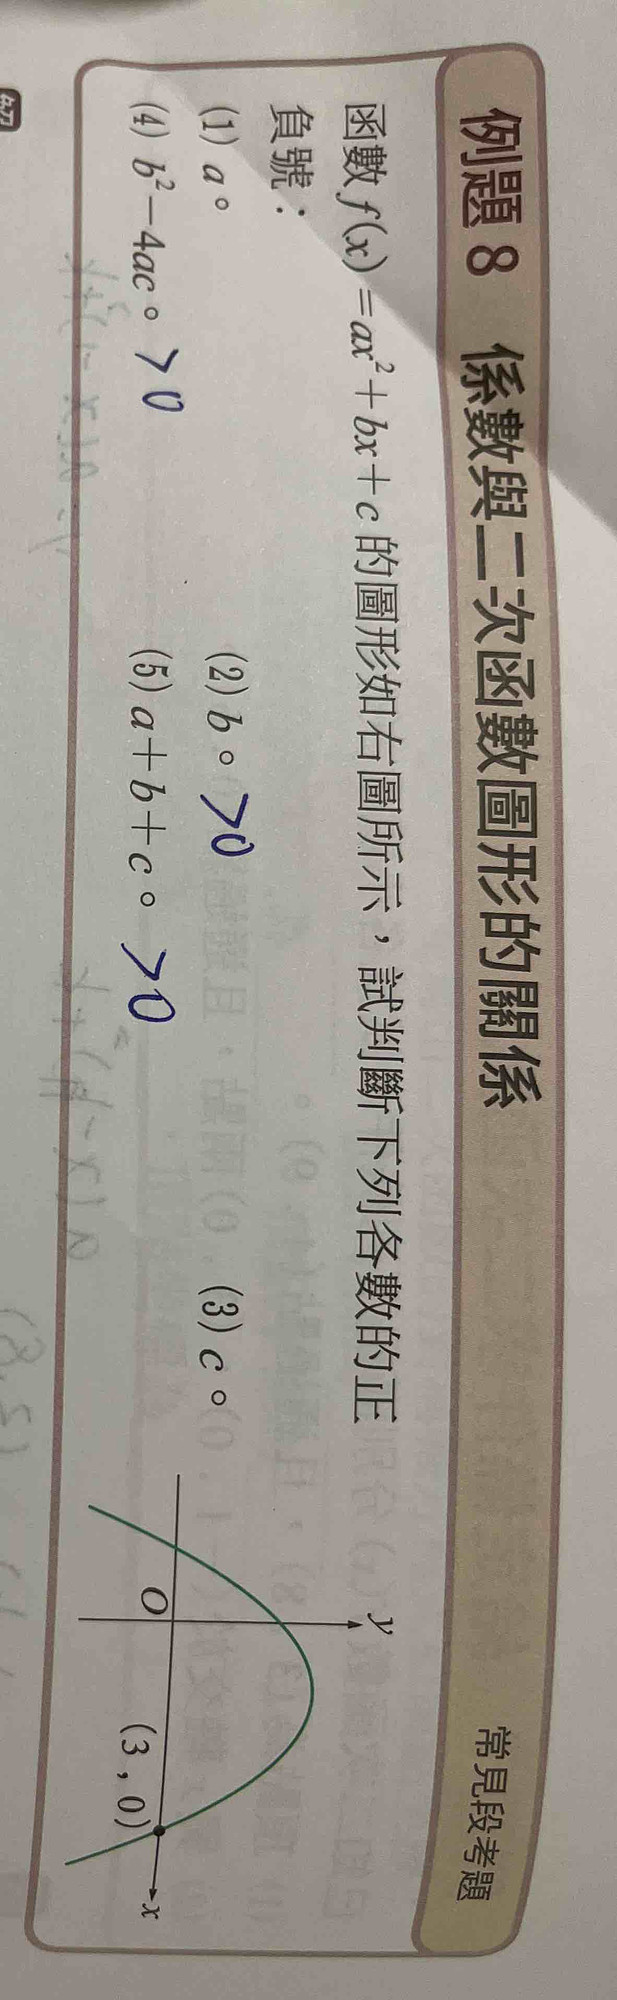 例題 8　係數與二次函數圖形的關係　常見段考題
函數 f(x)=ax²+bx+c 的圖形如右圖所示，試判斷下列各數的正
負號：
(1) a。　(2) b。>0　(3) c。
(4) b²−4ac。>0　(5) a+b+c。>0
y
O
(3 , 0)
x